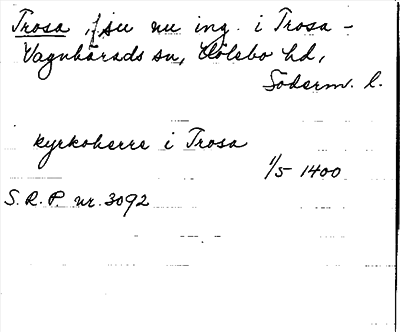 Trosa, f. sn nu ing. i Trosa-
Vagnhärads sn, Hölebo hd,
Söderm. l.
kyrkoherre i Trosa
1/5 1400
S.R.P. nr. 3092